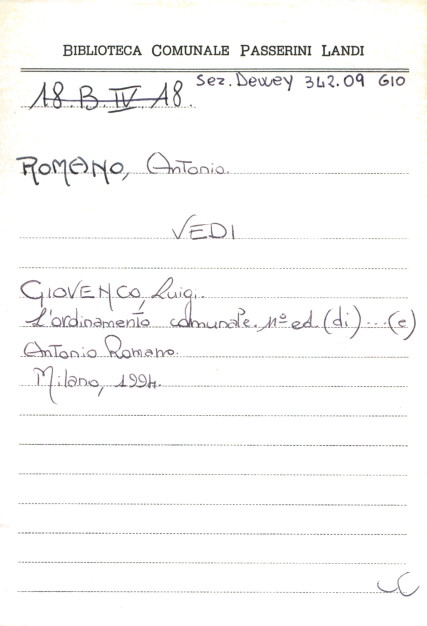 BIBLIOTECA COMUNALE PASSERINI LANDI
Sez. Dewey 342.09 GIO
18. B. IV 18.
ROMANO, Antonio.
VEDI
GIOVENCO, Luigi.
L'ordinamento comunale. 11º ed. (di) ... (e)
Antonio Romano.
Milano, 1994.